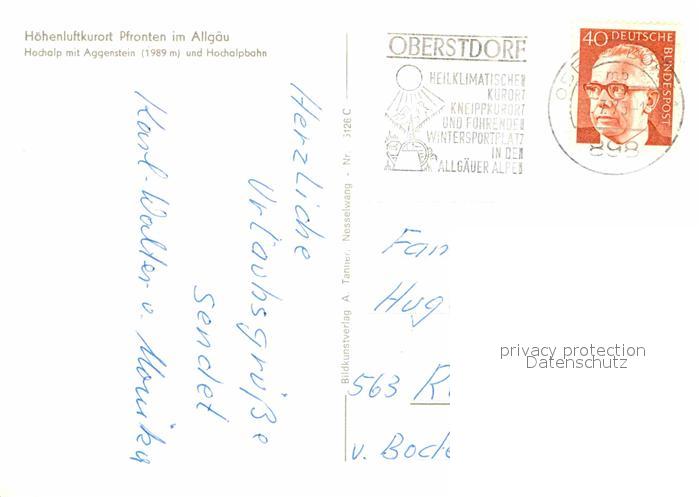 Höhenluftkurort Pfronten im Allgäu
Hochalp mit Aggenstein (1989 m) und Hochalpbahn
Herzliche
Urlaubsgrüße
sendet
Karl-Walter u. Monika
Bildkunstverlag A. Tanner, Nesselwang - Nr. 3126 C
OBERSTDORF
HEILKLIMATISCHER
KURORT
KNEIPPKURORT
UND FÜHRENDER
WINTERSPORTPLATZ
IN DEN
ALLGÄUER ALPEN
40 DEUTSCHE
BUNDESPOST
898
Fam
Hug
563
v. Bode
privacy protection
Datenschutz